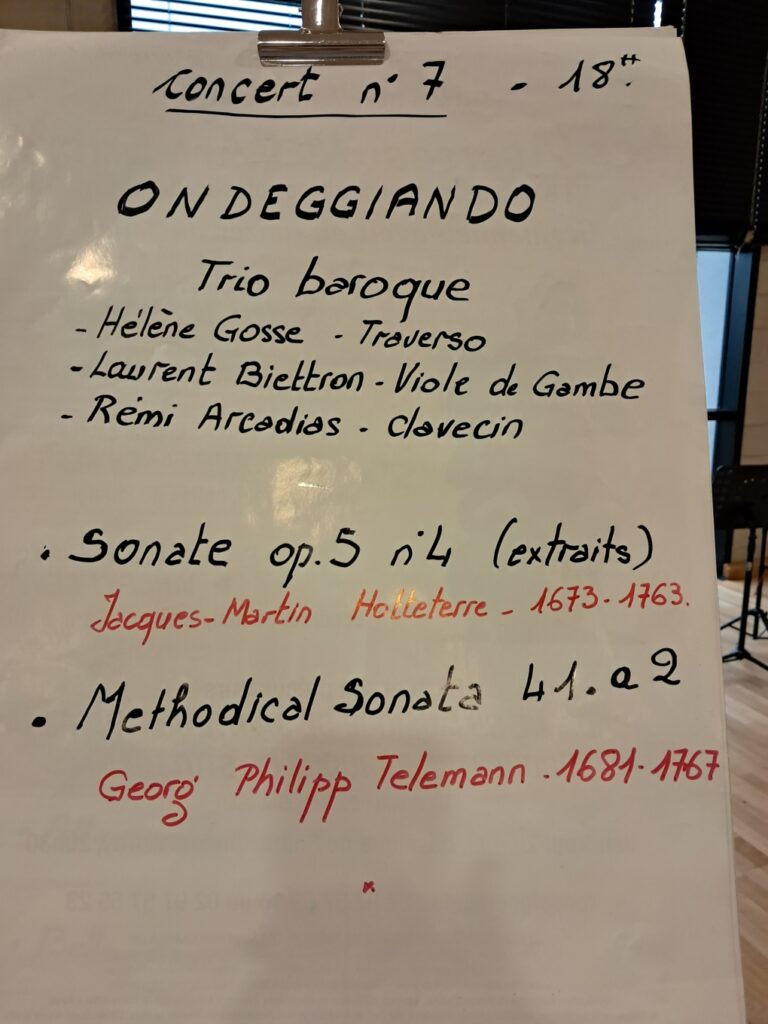 Concert n° 7 - 18H.
ONDEGGIANDO
Trio baroque
- Hélène Gosse - Traverso
- Laurent Biettron - Viole de Gambe
- Rémi Arcadias - Clavecin
• Sonate op.5 n°4 (extraits)
Jacques-Martin Hotteterre - 1673-1763.
• Methodical Sonata 41. a 2
Georg Philipp Telemann - 1681-1767